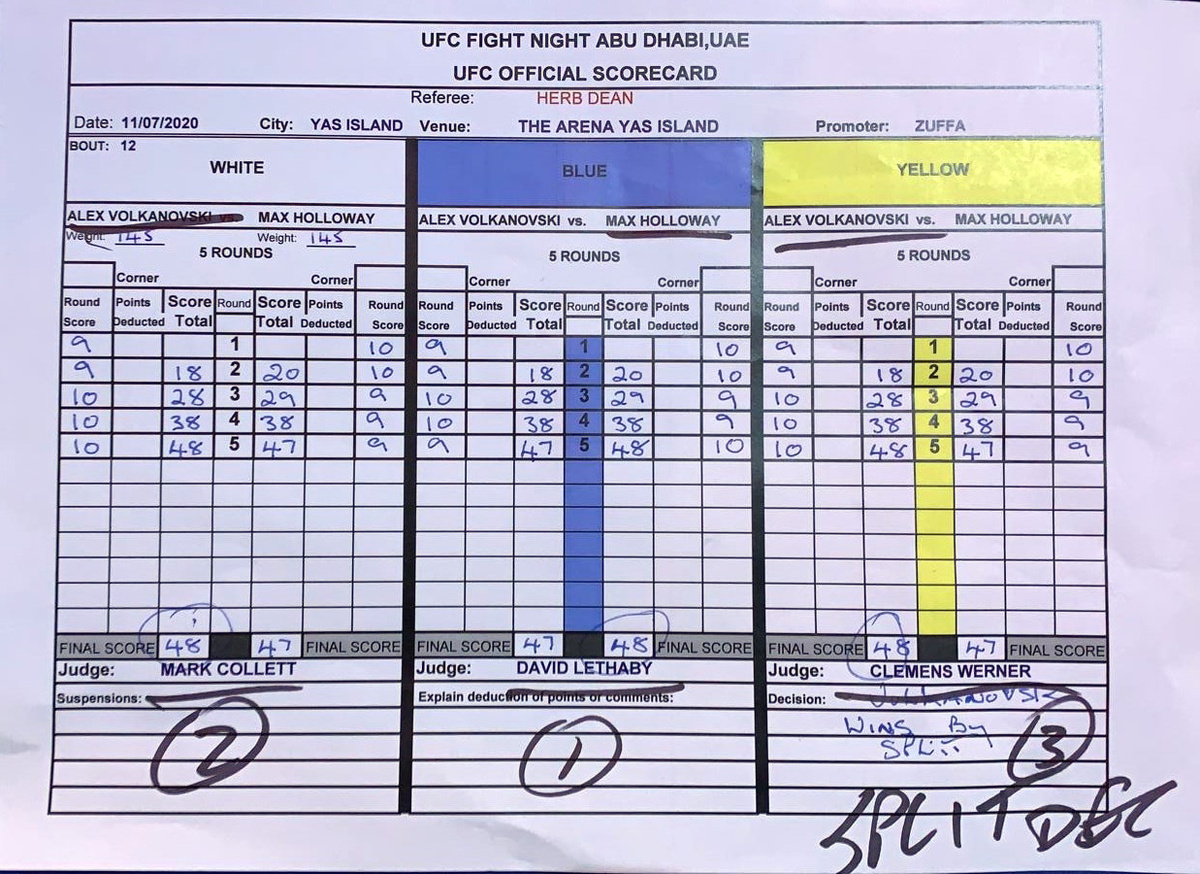 UFC FIGHT NIGHT ABU DHABI,UAE
UFC OFFICIAL SCORECARD
Referee: HERB DEAN
Date: 11/07/2020 City: YAS ISLAND Venue: THE ARENA YAS ISLAND Promoter: ZUFFA
BOUT: 12
WHITE BLUE YELLOW
ALEX VOLKANOVSKI vs. MAX HOLLOWAY ALEX VOLKANOVSKI vs. MAX HOLLOWAY ALEX VOLKANOVSKI vs. MAX HOLLOWAY
Weight: 145 Weight: 145
5 ROUNDS 5 ROUNDS 5 ROUNDS
Corner Corner Corner Corner Corner Corner
Round Points Score Round Score Points Round Round Points Score Round Score Points Round Round Points Score Round Score Points Round
Score Deducted Total Total Deducted Score Score Deducted Total Total Deducted Score Score Deducted Total Total Deducted Score
9 1 10 9 1 10 9 1 10
9 18 2 20 10 9 18 2 20 10 9 18 2 20 10
10 28 3 29 9 10 28 3 29 9 10 28 3 29 9
10 38 4 38 9 10 38 4 38 9 10 38 4 38 9
10 48 5 47 9 9 47 5 48 10 10 48 5 47 9
FINAL SCORE 48 47 FINAL SCORE FINAL SCORE 47 48 FINAL SCORE FINAL SCORE 48 47 FINAL SCORE
Judge: MARK COLLETT Judge: DAVID LETHABY Judge: CLEMENS WERNER
Suspensions: Explain deduction of points or comments: Decision: VOLKANOVSKI
WINS By
SPLIT
2 1 3
SPLIT DEC